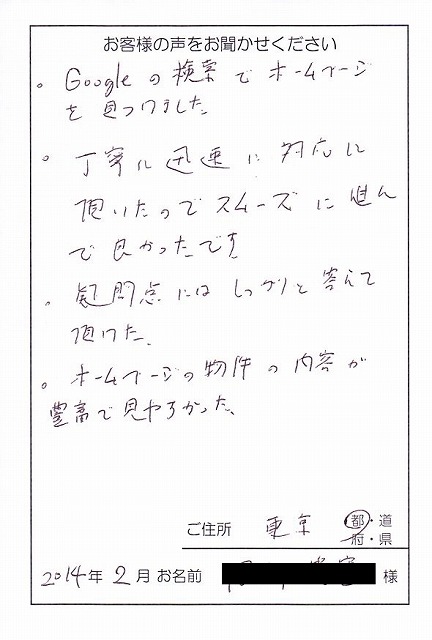 お客様の声をお聞かせください
。Googleの検索でホームページ
を見つけました。
。丁寧に迅速に対応に
頂いたのでスムーズに進ん
で良かったです
。疑問点にはしっかりと答えて
頂けた。
。ホームページの物件の内容が
豊富で見やすかった。
ご住所 東京 都・道
府・県
2014年 2月 お名前 様